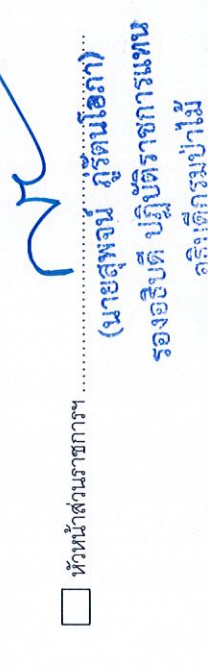 หัวหน้าส่วนราชการฯ ........................................
(นายสุพจน์ ภู่รัตนโอภา)
รองอธิบดี ปฏิบัติราชการแทน
อธิบดีกรมป่าไม้